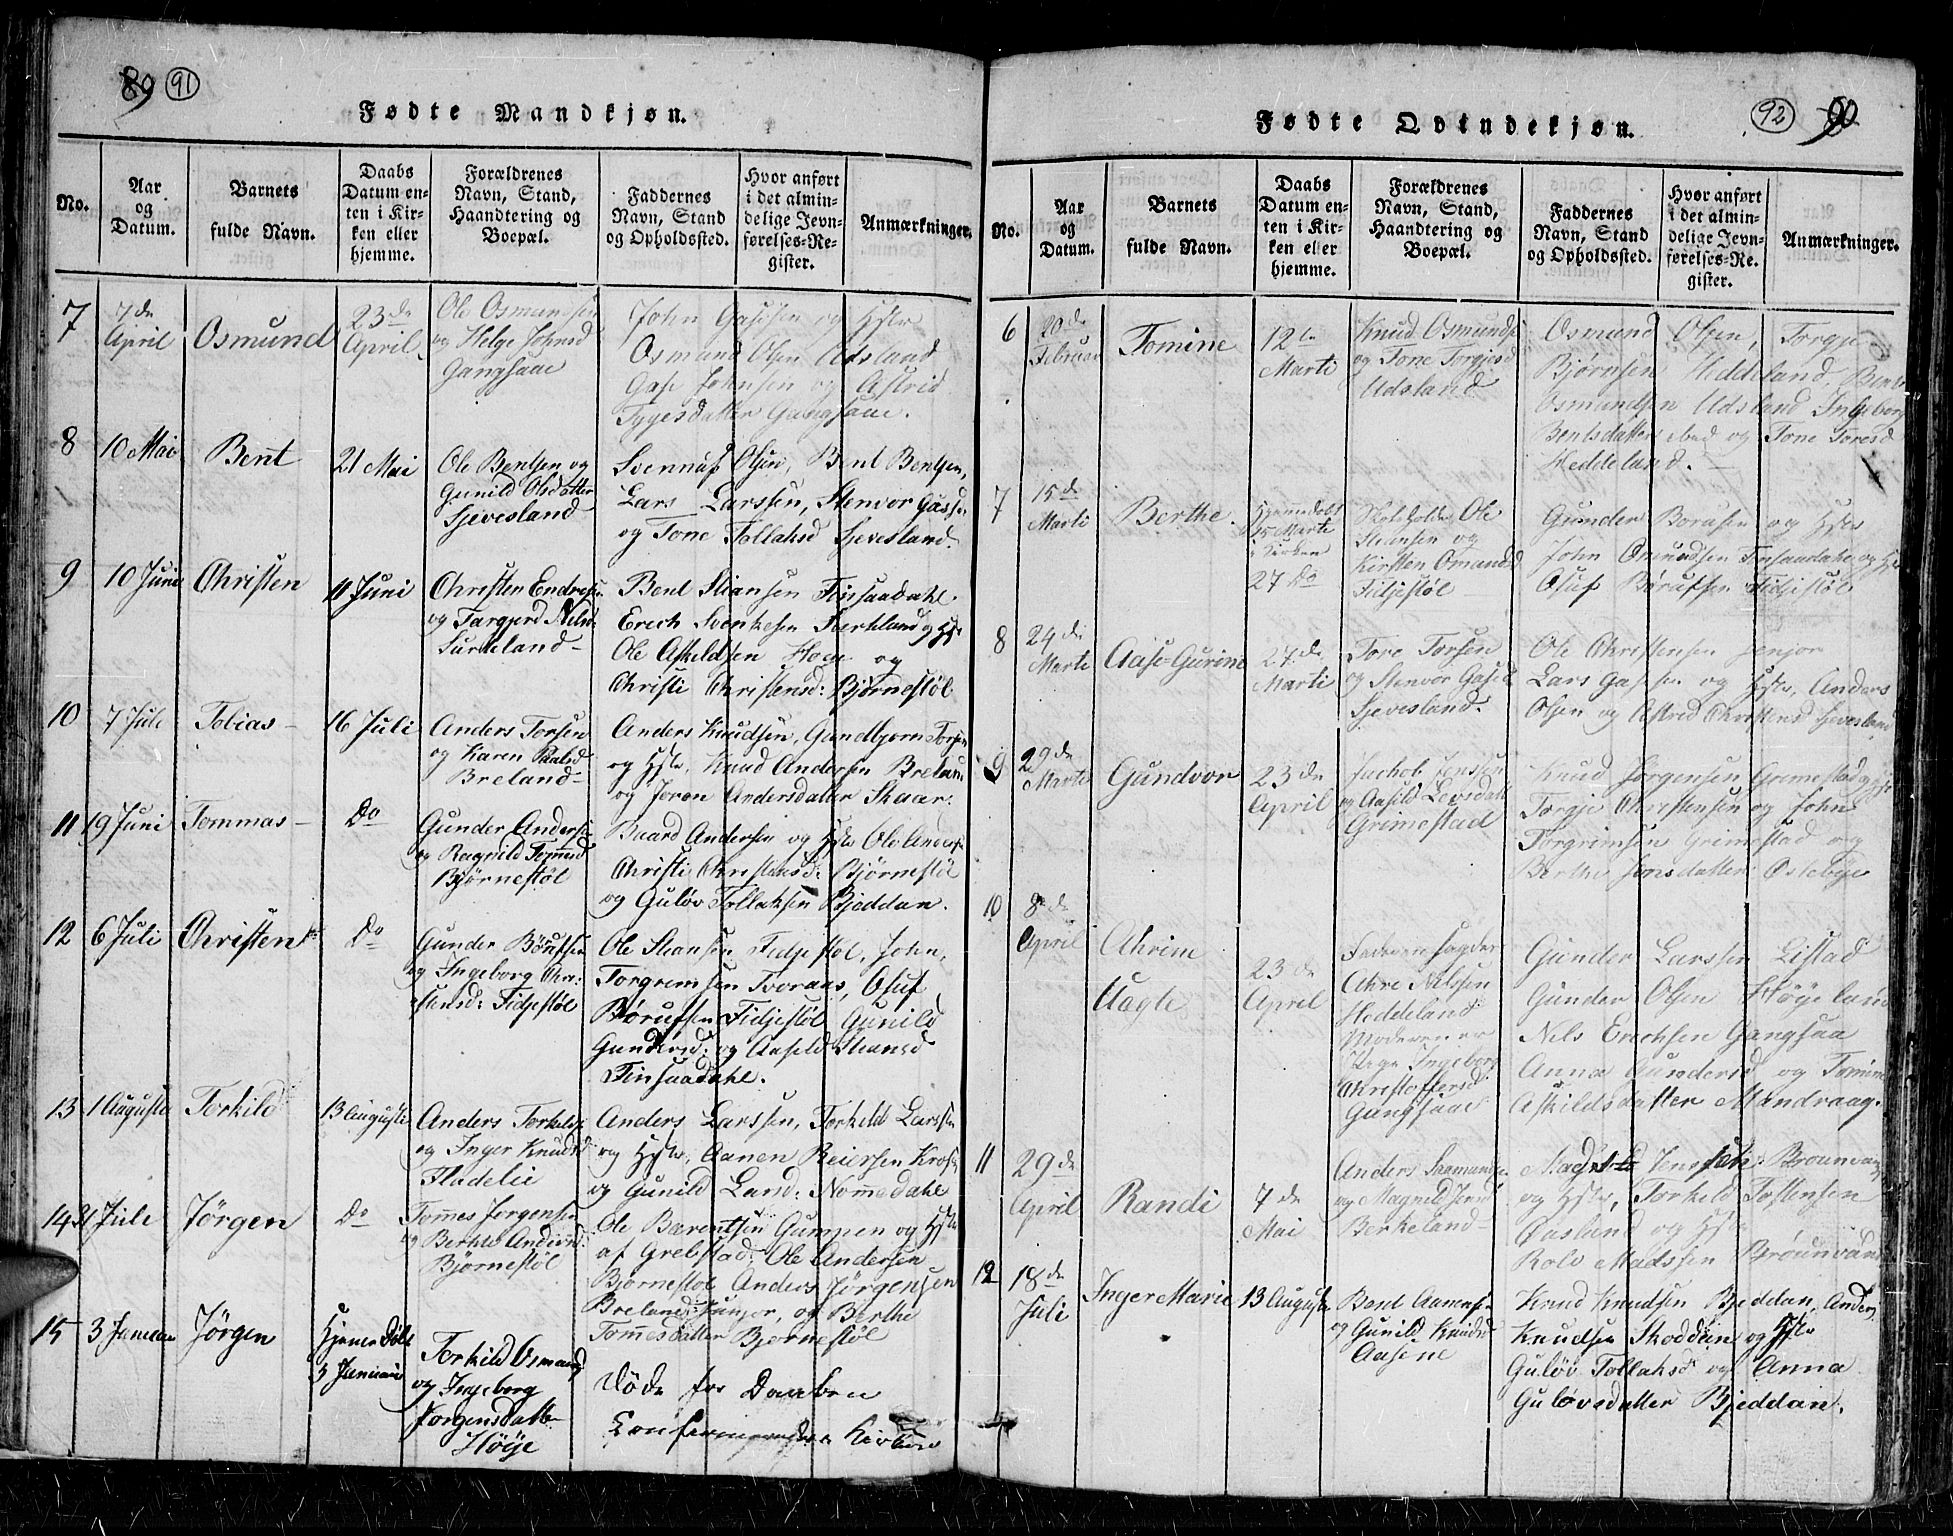 89 91
Fødte Mandkjøn.
No.
Aar
og
Datum.
Barnets
fulde Navn.
Daabs
Datum en-
ten i Kir-
ken eller
hjemme.
Forældrenes
Navn, Stand,
Haandtering og
Boepæl.
Faddernes
Navn, Stand
og Opholdssted.
Hvor anført
i det almin-
delige Jevn-
førelses-Re-
gister.
Anmærkninger.
7
7de
April
Osmund
23de
April
Ole Osmundsen
og Helge Johnsd
Gangsaae
John Gasesen og Hstr
Osmund Olsen Udsland
Gase Johnsen og Astrid
Tygesdatter Gangsaae.
8
10 Mai
Bent
21 Mai
Ole Bentsen og
Gunild Olsdatter
Sjevesland
Olsen, Bent Bentsen,
Lars Larssen, Stenvor Gasse
og Tone Tollaksd Sjevesland.
9
10 Juni
Christen
11 Juni
Christen Endres
og Targjerd Nels
Surkeland
Bent Stiansen Finsaadahl
Erich Svenkesen Surkland og Hstr
Ole Askeldsen Høge og
Christi Christensd: Bjørnestøl
10
7 Juli
Tobias
16 Juli
Anders Torsen
og Karen Paalsd
Breland
Anders Knudsen, Gundbjørn Torsen
og Hstr, Knud Andersen Breland
og Joron Andersdatter Skaar.
11
19 Juni
Tommas
Do
Gunder Anders
og Ragnild Tomesd
Bjørnestøl
Baard Andersen og Hstr Ole Anders
Christi Christensd: Bjørnestøl
og Guløv Tollaksen Bjeddan.
12
6 Juli
Christen
Do
Gunder Børufsen
og Ingeborg Chri-
stensd: Fidjestøl
Ole Stiansen Fidjestøl, John
Torgrimsen Tvorans, Oluf
Børufsen Fidjestøl Gunild
Gundersd: og Aasild Stiansd
Finsaadahl.
13
1 Augusti
Torkild
13 Augusti
Anders Torkels
og Inger Knudsd
Fladelie
Anders Larssen, Torkild Larssen
og Hstr, Aanen Reiersen Kros
og Gunild Land: Nomedahl
14
21 Juli
Jørgen
Do
Tomes Jørgensen
og Berthe Andersd
Bjørnestøl
Ole Barentsen Gumpen og Hstr
af Grebstad: Ole Andersen
Bjørnestøl Anders Jørgensen
Breland junjor, og Berthe
Tomesdatter Bjørnestøl
15
3 Januari
Jørgen
Hjeme Døbt
3 Januari
Torkild Osmunds
og Ingeborg
Jørgensdatter
Høye
Døde før Daaben
Confermeredes i Kirken
92 90
Fødte Qvindekjøn.
No.
Aar
og
Datum.
Barnets
fulde Navn.
Daabs
Datum en-
ten i Kir-
ken eller
hjemme.
Forældrenes
Navn, Stand,
Haandtering og
Boepæl.
Faddernes
Navn, Stand
og Opholdssted.
Hvor anført
i det almin-
delige Jevn-
førelses-Re-
gister.
Anmærkninger.
6
20de
Februar
Tomine
12te
Marti
Knud Osmunds
og Tone Torgjesd
Udsland
Osmund Olsen, Torgje
Bjørnsen Heddeland, Bent
Osmundsen Udsland Ingeborg
Bentsdatter ibid og Tone Toresd
Heddeland.
7
15de
Marti
Berthe
Hjemmedøbt
25 Marti
i Kirken
27 Do
Ole
Steansen og
Kirsten Omunds
Fidjestøl
Gunder Borufsen og Hstr
John Omundsen Finsaadahl og Hstr
Oluf Børufsen Fidjestøl
8
24de
Marti
Aase Gurine
27de
Marti
Tore Torsen
og Stenvor Gases
Sjevesland.
Ole Christensen jenjor
Lars Gassen og Hstr, Anders
Olsen og Astred Christensd Sjevesland
9
29de
Marti
Gundvor
23de
April
Jachob Jenssen
og Aasild Larsdatt
Grimestad
Knud Jørgensen Grimestad og Hstr
Torgje Christensen og John
Torgrimsen Grimestad og
Berthe Jonsdatter Østebye
10
8de
April
Athrine
Uægte
23de
April
Faderen
Athre Nilssen
Heddeland
Moderen er
Pige Ingeborg
Christoffersd
Gangsaae
Gunder Larssen Listad
Gunder Olsen Høyeland
Nils Erichsen Gangsaa
Anna Gundersd og Tomine
Askildsdatter Mandraag.
11
29de
April
Randi
7de
Mai
Anders Saamunds
og Magnild Jensd
Berkeland
og Hstr, Torkeld Tostensen
Aasland og Hstr
Rolv Madssen Brøunvand
12
18de
Juli
Inger Marie
13 Augusti
Bent Aanens
og Gunild Knudsd
Aasene
Knud Knudsen Bjeddan, Anders
Knudsen Skoddan og Hstr
Guløv Tollaksd og Anna
Guløvsdatter Bjeddan.